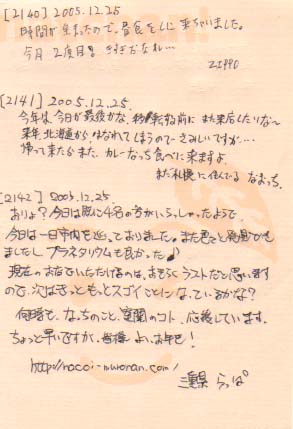 [2140] 2005.12.25
時間が空まったので、昼食をしに来ちゃいました。
今月2度目! きすぎだなれ…
ZIPPO
[2141] 2005.12.25
今年は、今日が最後かな。 転する前に また来店したいな〜
来年、北海道からはなれてしまうのでさみしいですが…
帰って来たらまた、カレーなっち食べに来ますよ。
まだ札幌に住んでる なまっち。
[2142] 2005.12.25
ありょ?今日は既に4名の方がいらっしゃったようで
今日は一日市内を巡っておりました。また色々と発見でき
ましたし プラネタリウムも良かった♪
現在のお店でいただけるのは、おそらくラストだと思います
ので、次はきっともっとスゴイことになっているかな?
何時も、なっちのこと、室蘭のコト、応援しています。
ちょっと早いですが、皆様よいお年を!
http://nacci-muroran.com/
三重県 らっぱ